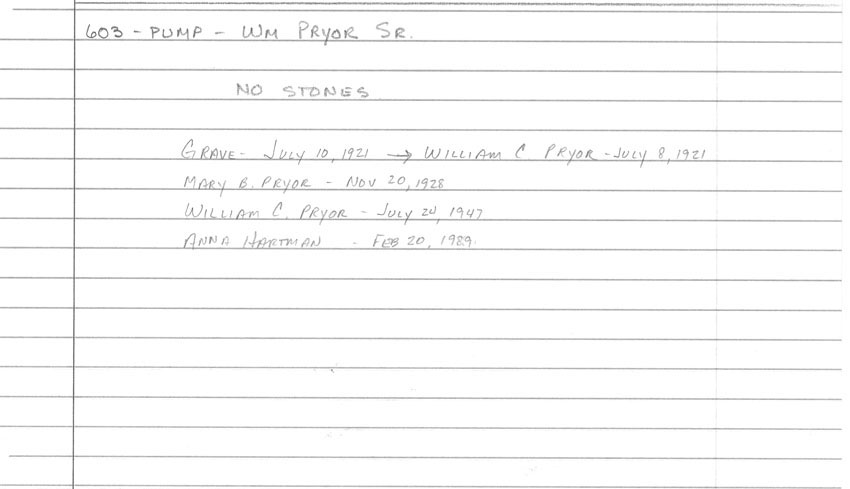 603 - PUMP - WM PRYOR SR.
NO STONES
GRAVE - JULY 10, 1921 → WILLIAM C PRYOR - JULY 8, 1921
MARY B. PRYOR - NOV 20, 1928
WILLIAM C. PRYOR - JULY 20, 1947
ANNA HARTMAN - FEB 20, 1989.